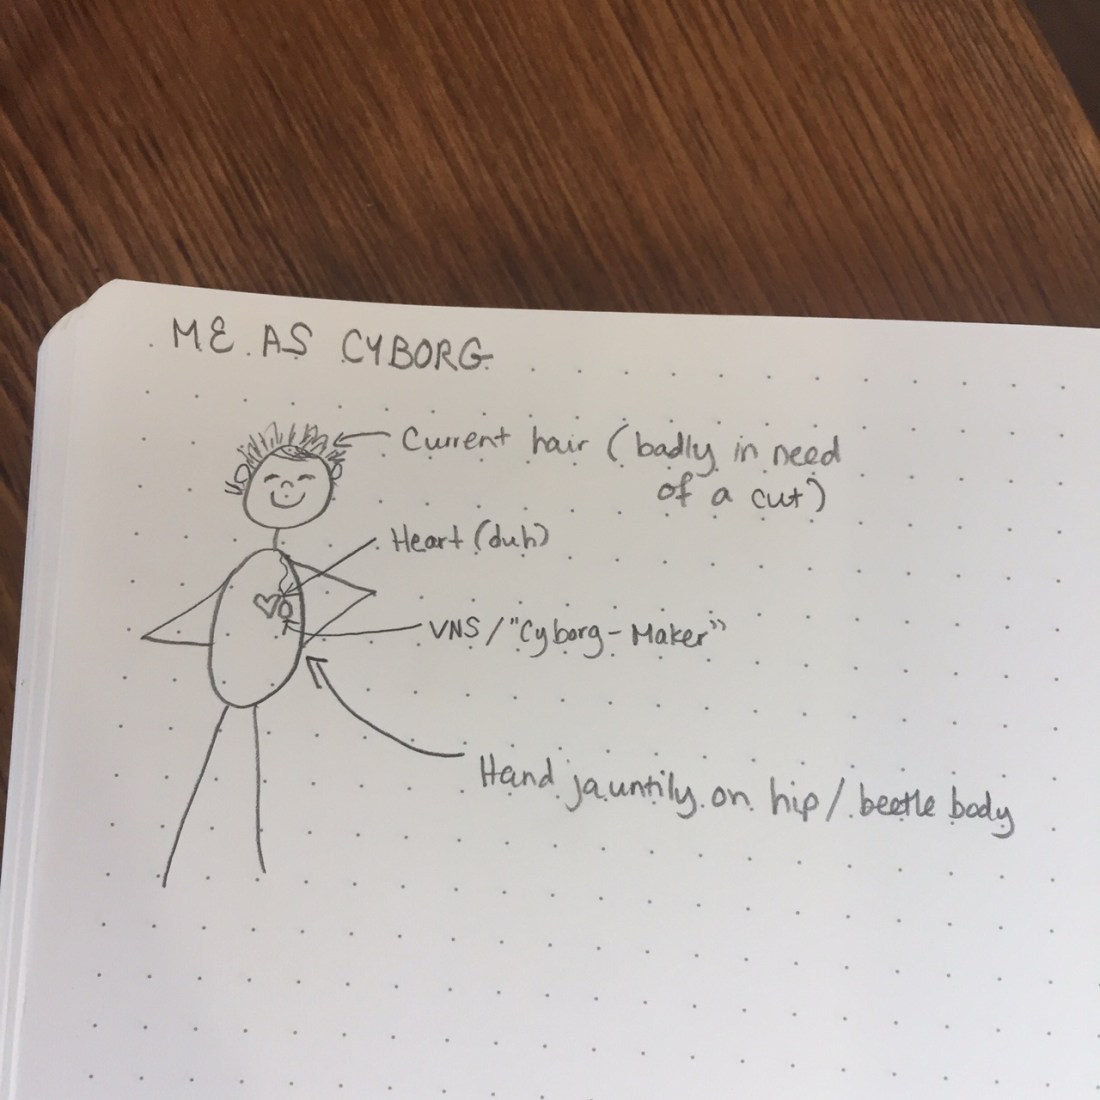 ME AS CYBORG
Current hair (badly in need
of a cut)
Heart (duh)
VNS/"Cyborg-Maker"
Hand jauntily on hip/beetle body